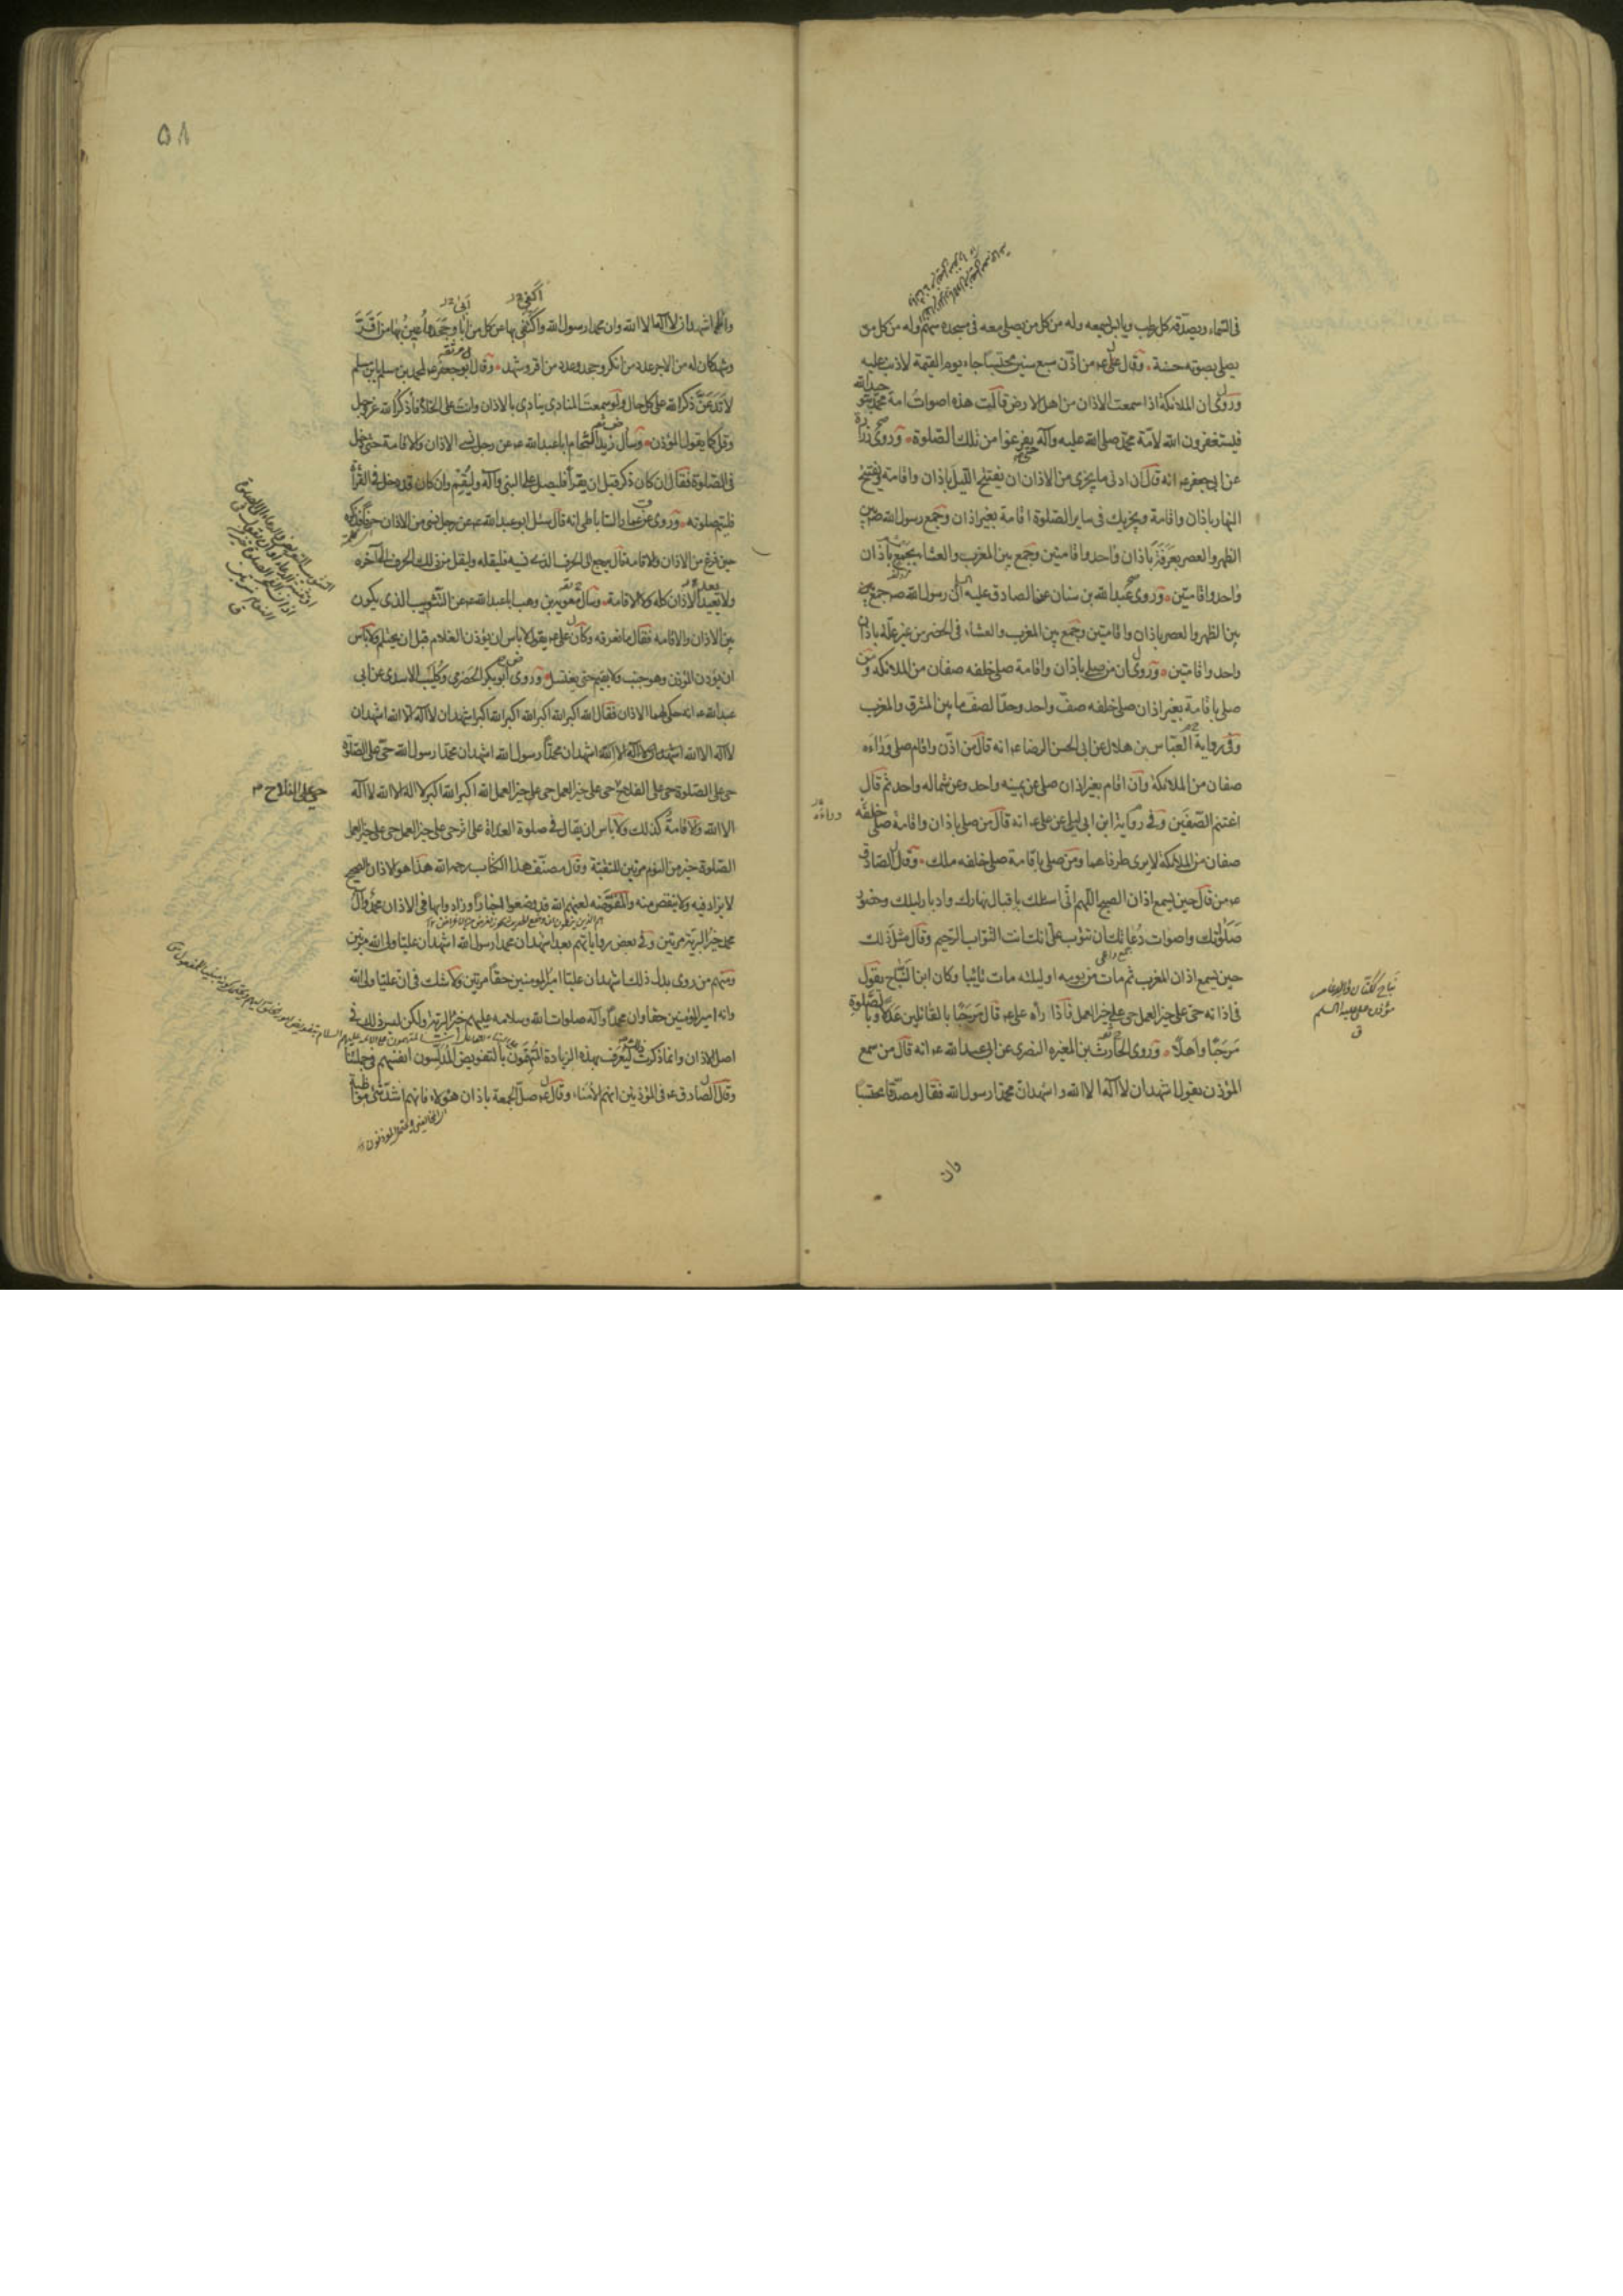 فى السّماء ويصدّقه كل رطب ويابس يسمعه وله من كل من يصلى معه فى مسجده سهم وله من كل من
يصلى بصوته حسنة وقال على ع من اذّن سبع سنين محتسبا جاء يوم القيمة لا ذنب عليه
وروى ان الملائكة اذا سمعت الاذان من اهل الارض قالت هذه اصوات امة محمد بتوحيد الله
فيستغفرون الله لامّة محمّد صلى الله عليه وآله حتى يفرغوا من تلك الصّلوة وروى زرارة
عن ابى جعفر ع انه قال ان ادنى ما يجزى من الاذان ان يفتتح الليل باذان واقامة ويفتتح
النهار باذان واقامة ويجزيك فى ساير الصّلوة اقامة بغير اذان وجمع رسول الله ص بين
الظهر والعصر بعرفة باذان واحد واقامتين وجمع بين المغرب والعشاء بجمع باذان
واحد واقامتين وروى عبد الله بن سنان عن الصادق عليه ان رسول الله ص جمع
بين الظهر والعصر باذان واقامتين وجمع بين المغرب والعشاء فى الحضر من غير علّة باذان
واحد واقامتين وروى ان من صلى باذان واقامة صلى خلفه صفان من الملائكة ومن
صلى باقامة بغير اذان صلى خلفه صف واحد وحدّ الصف ما بين المشرق والمغرب
وفى رواية العبّاس بن هلال عن ابى الحسن الرضا ع انه قال من اذّن واقام صلى وراءه
صفان من الملائكة وان اقام بغير اذان صلى عن يمينه واحد وعن شماله واحد ثم قال
اغتنم الصّفين وفى رواية ابن ابى ليلى عن على ع انه قال من صلى باذان واقامة صلى خلفه
وراءه
صفان من الملائكة لا يرى طرفاهما ومن صلى باقامة صلى خلفه ملك وقال الصادق
ع من قال حين يسمع اذان الصبح اللّهم انّى اسئلك باقبال نهارك وادبار ليلك وحضور
صلوتك واصوات دعائك ان تتوب علىّ انك انت التوّاب الرّحيم وقال مثل ذلك
حين يسمع اذان المغرب ثم مات من يومه او ليلته مات تائبا وكان ابن النّبّاح يقول
فى اذانه حىّ على خير العمل حى على خير العمل فاذا رآه على ع قال مرحبًا بالقائلين عدلا وبالصّلوة
مرحبًا واهلًا وروى الحارث بن المغيره النصرى عن ابى عبد الله ع انه قال من سمع
المؤذن يقول اشهد ان لا اله الا الله واشهد ان محمّدا رسول الله فقال مصدّقا محتسبا
مؤذن على عليه السلم
وان
٥٨
وانا اشهد ان لا اله الا الله وان محمدا رسول الله واكتفى بها عن كل من ابا وجحد واعين بها من اقرّ
وشهد كان له من الاجر عدد من انكر وجحد وعدد من اقر وشهد وقال ابو جعفر ع لمحمد بن مسلم يا بن مسلم
لا تدعنّ ذكر الله على كل حال ولو سمعت المنادى ينادى بالاذان وانت على الخلاء فاذكر الله عز وجل
وقل كما يقول المؤذن وسأل زيد الشحام ابا عبد الله ع عن رجل نسى الاذان والاقامة حتى دخل
فى الصّلوة فقال ان كان ذكر قبل ان يقرأ فليصل على النبى وآله وليقم وان كان قد دخل فى القرأة
فليتم صلوته وروى عن عمار الساباطى انه قال سئل ابو عبد الله ع عن رجل نسى من الاذان حرفا فذكره
حين فرغ من الاذان والاقامة قال يرجع الى الحرف الذى نسيه فليقله وليقل من ذلك الحرف الى آخره
ولا يعيد الاذان كله ولا الاقامة وسأل معوية بن وهب ابا عبد الله ع عن التثويب الذى يكون
بين الاذان والاقامة فقال ما نعرفه وكان على ع يقول لا باس ان يؤذن الغلام قبل ان يحتلم ولا باس
ان يؤذن المؤذن وهو جنب ولا يقيم حتى يغتسل وروى ابو بكر الحضرمى وكليب الاسدى عن ابى
عبد الله ع انه حكى لهما الاذان فقال الله اكبر الله اكبر الله اكبر الله اكبر اشهد ان لا اله الا الله اشهد ان
لا اله الا الله اشهد ان محمّدا رسول الله اشهد ان محمّدا رسول الله حىّ على الصّلوة
حى على الصّلوة حى على الفلاح حى على خير العمل حى على خير العمل الله اكبر الله اكبر لا اله الا الله لا اله
حى على الفلاح
الا الله والاقامة كذلك ولا باس ان يقال فى صلوة الغداة على اثر حى على خير العمل حى على خير العمل
الصّلوة خير من النوم مرتين للتقيّة وقال مصنّف هذا الكتاب رحمه الله هذا هو الاذان الصحيح
لا يزاد فيه ولا ينقص منه والمفوّضه لعنهم الله قد وضعوا اخبارا وزادوا بها فى الاذان محمّد وآل
محمد خير البريّة مرتين وفى بعض رواياتهم بعد اشهد ان محمدا رسول الله اشهد ان عليّا ولى الله مرتين
ومنهم من روى بدل ذلك اشهد ان عليّا امير المؤمنين حقاً مرتين ولا شك فى ان عليّا ولى الله
وانه امير المؤمنين حقا وان محمّدا وآله صلوات الله وسلامه عليهم خير البرية ولكن ليس ذلك فى
اصل الاذان وانما ذكرت ليعرف بهذه الزيادة المتهمون بالتفويض المدلّسون انفسهم فى جملتنا
وقال الصادق ع فى المؤذنين انهم الامناء وقال ع صلّ الجمعة باذان هؤلاء فانهم اشد شئ مواظبة